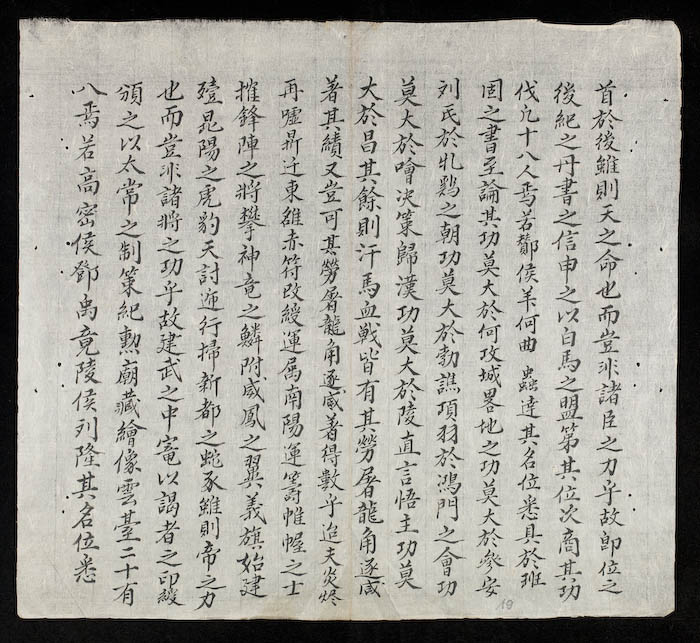 首於後雖則天之命也而豈非諸臣之力乎故即位之
後紀之丹書之信申之以白馬之盟第其位次商其功
伐凡十八人焉若酇侯羊何曲蟲達其名位悉具於班
固之書至論其功莫大於何攻城畧地之功莫大於參安
刘氏於牝鷄之朝功莫大於勃譙項羽於鴻門之會功
莫大於噲决策歸漢功莫大於陵直言悟主功莫
大於昌其餘則汗馬血戰皆有其勞屠龍角逐咸
著其績又豈可其勞屠龍角逐咸著得數乎迨夫炎烬
再噓鼎迁東雒赤符改綬運属南陽運籌帷幄之士
摧鋒陣之將攀神竜之鱗附威鳳之翼義旗始建
殪昆陽之虎豹天討迺行掃新都之蛇豕雖則帝之力
也而豈非諸將之功乎故建武之中寵以謁者之印綬
頒之以太常之制策紀勲廟藏繪像雲䑓二十有
八焉若高密侯鄧禹竟陵侯列隆其名位悉
19